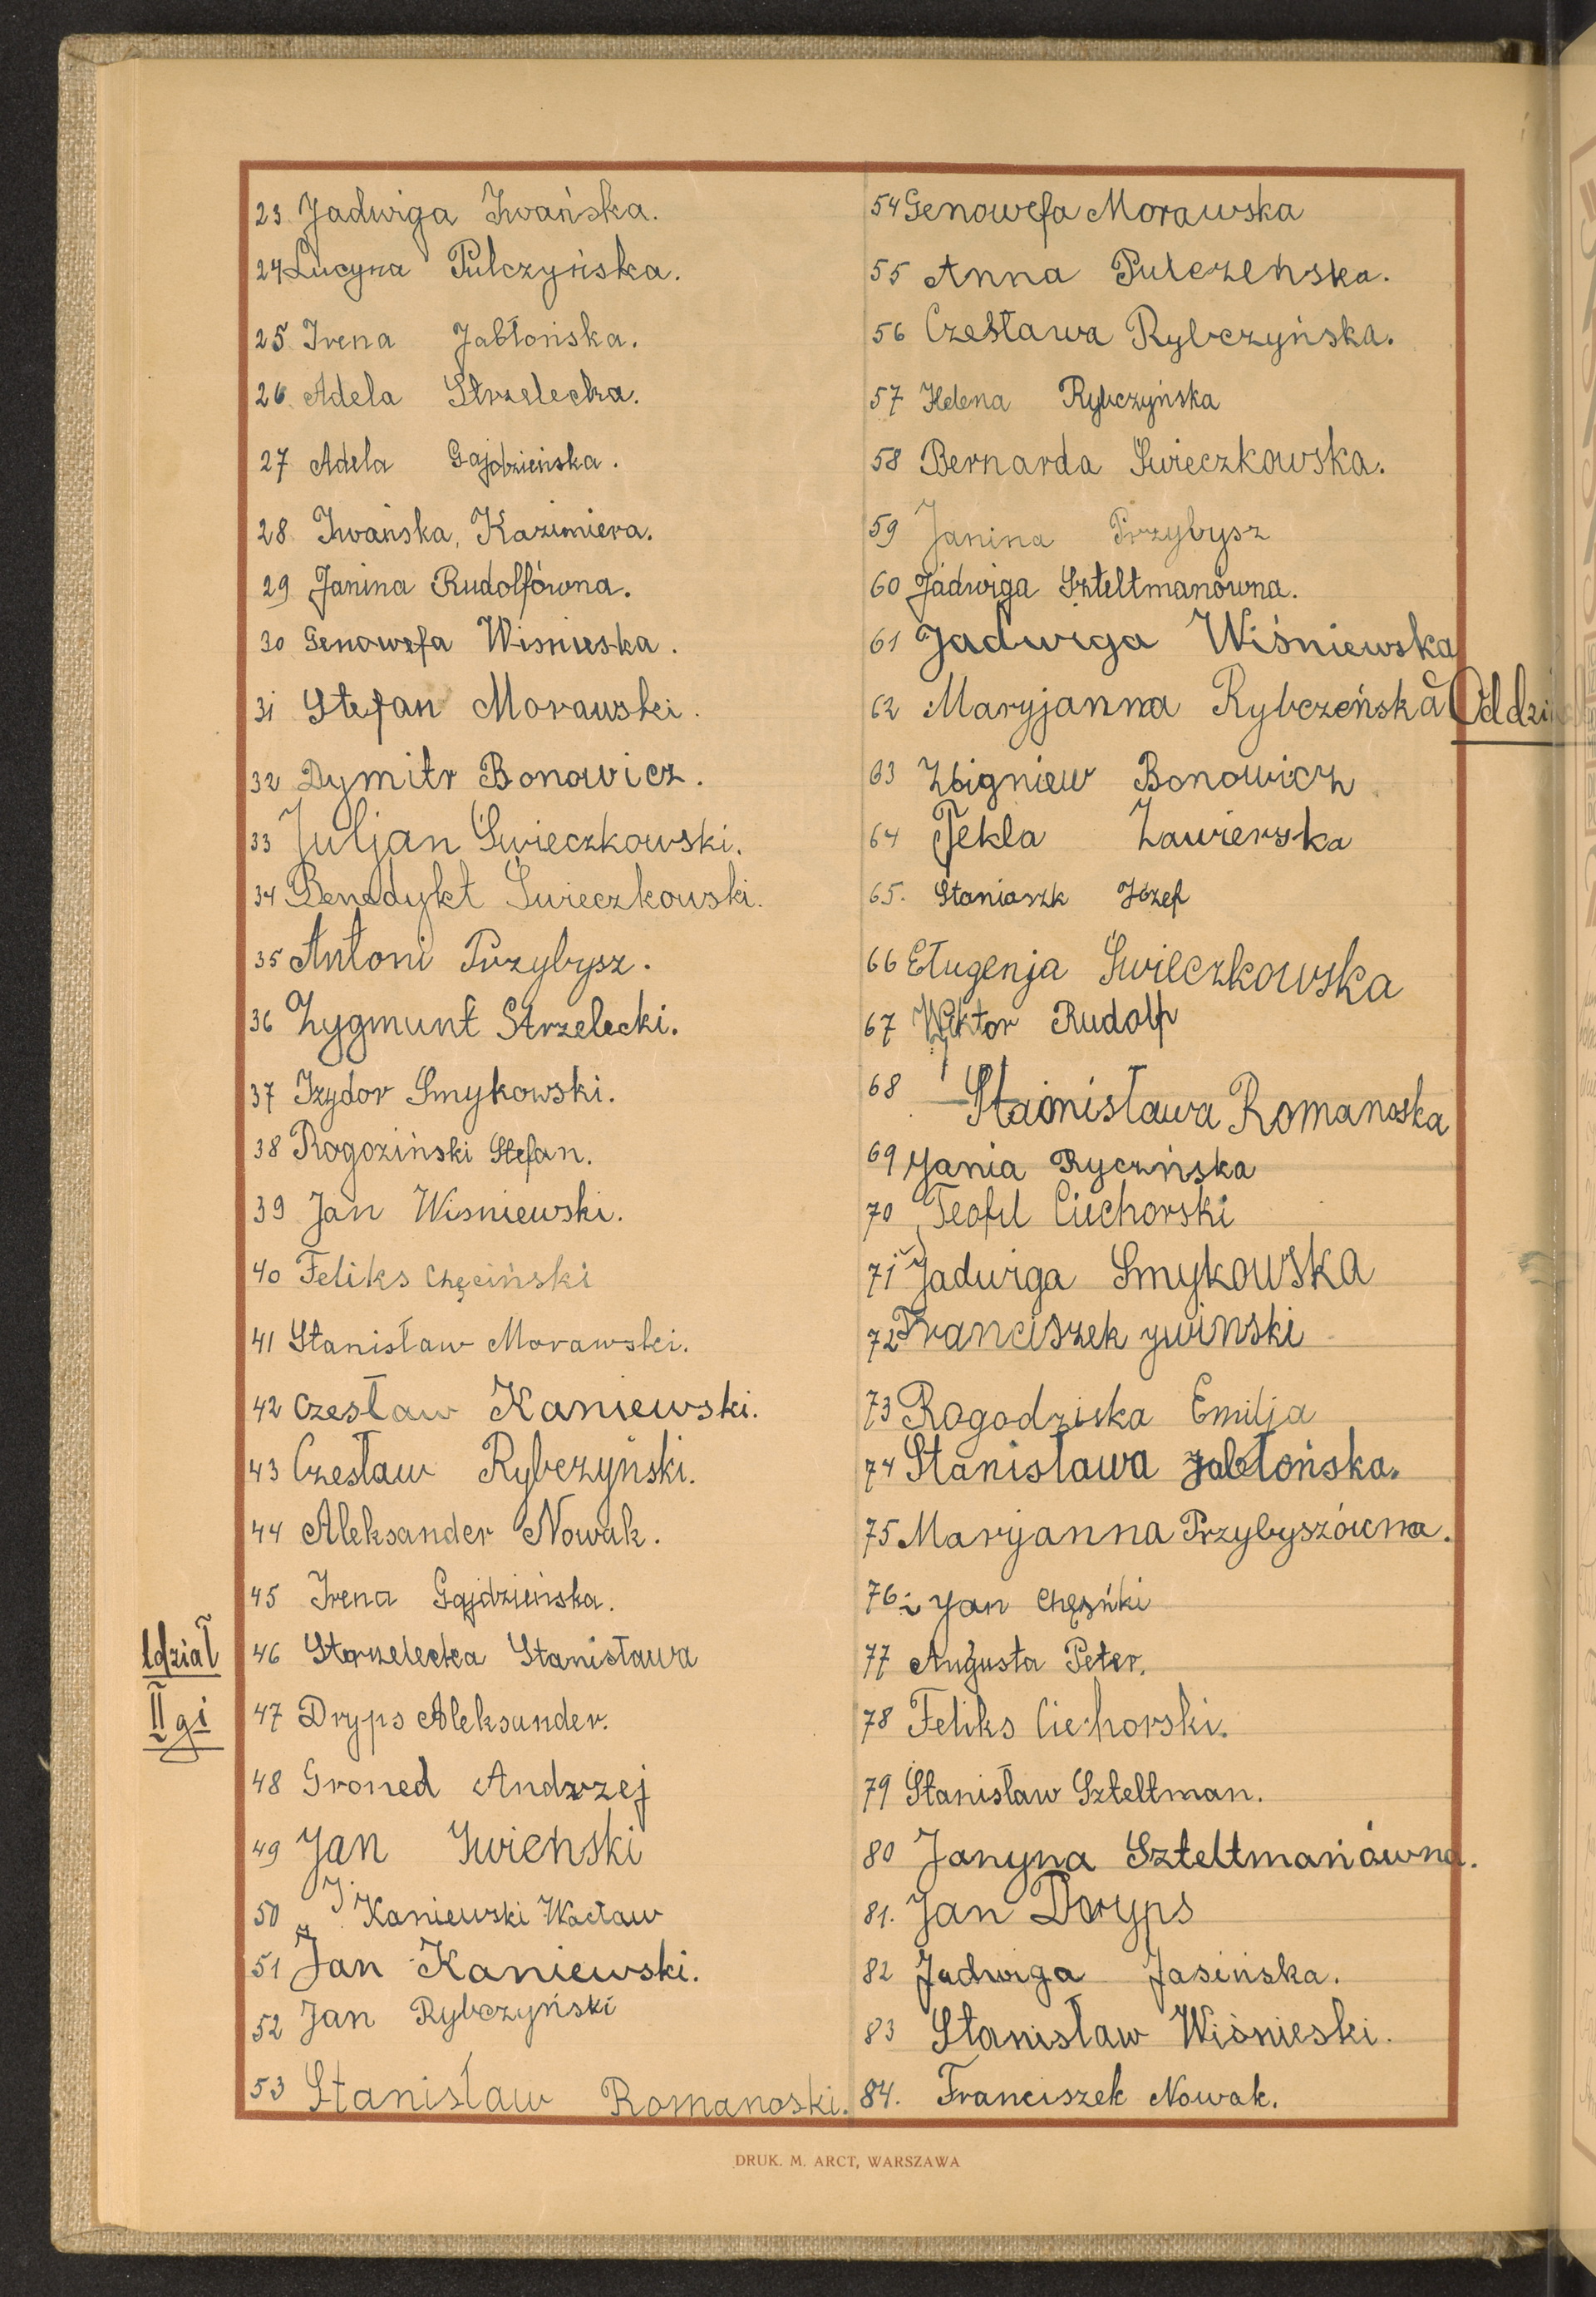 23 Jadwiga Iwańska.
24 Lucyna Pulczyńska.
25 Irena Jabłońska.
26. Adela Strzelecka.
27 Adela Gajdzieńska.
28 Iwańska, Kazimiera.
29 Janina Rudolfówna.
30 Genowefa Wisnieska.
31 Stefan Morawski.
32 Dymitr Bonowicz.
33 Juljan Świeczkowski.
34 Benedykt Świeczkowski.
35 Antoni Przybysz.
36 Zygmunt Strzelecki.
37 Izydor Smykowski.
38 Rogoziński Stefan.
39 Jan Wisniewski.
40 Feliks Chęciński
41 Stanisław Morawski.
42 Czesław Kaniewski.
43 Czesław Rybczyński.
44 Aleksander Nowak.
45 Irena Gajdzieńska.
ldział
IIgi
46 Strzelecka Stanisława
47 Dryps Aleksander.
48 Groned Andrzej
49 Jan Iwieński
50 Kaniewski Wacław
51 Jan Kaniewski.
52 Jan Rybczyński
53 Stanisław Romanoski.
54 Genowefa Morawska
55 Anna Pulczeńska.
56 Czesława Rybczyńska.
57 Helena Rybczyńska
58 Bernarda Świeczkowska.
59 Janina Przybysz
60 Jadwiga Szteltmanówna.
61 Jadwiga Wiśniewska
62 Maryjanna Rybczeńska Oddzi
63 Zbigniew Bonowicz
64 Tekla Zawierska
65. Staniaszk Józef
66 Eługenja Świeczkowska
67 Wiktor Rudolf
68 Stanisława Romanoska
69 Jania Ryczńska
70 Teofil Ciechorski
71 Jadwiga Smykowska
72 Franciszek ywinski
73 Rogodziska Emilja
74 Stanisława Jabłońska.
75 Maryanna Przybyszówna.
76 Jan
77 Augusta Peter.
78 Feliks Ciechorski.
79 Stanisław Szteltman.
80 Janyna Szteltmanówna.
81. Jan Dryps
82 Jadwiga Jasińska.
83 Stanisław Wiśnieski.
84. Franciszek Nowak.
DRUK. M. ARCT, WARSZAWA